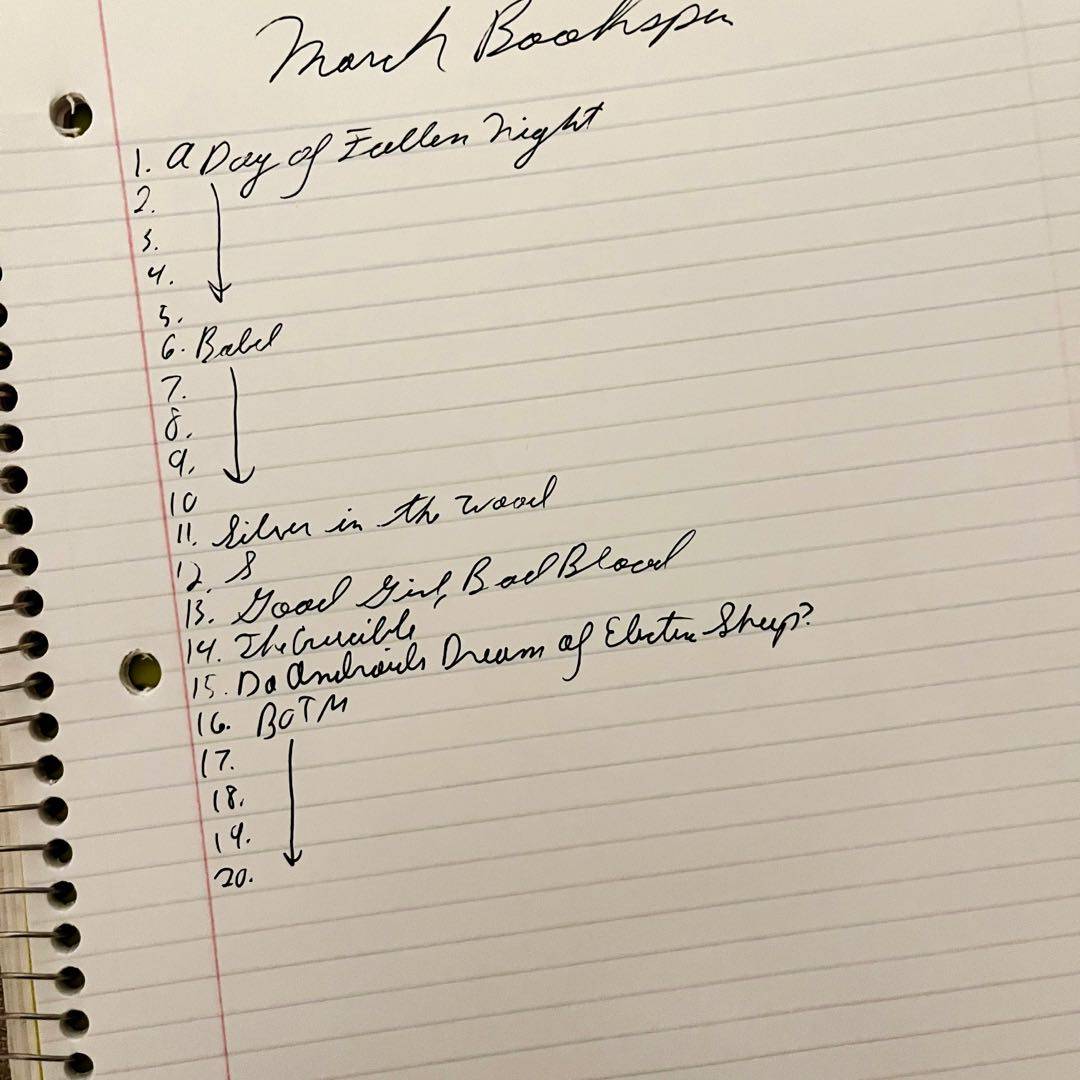 March Bookspin
1. A Day of Fallen Night
2.
3.
4.
5.
6. Babel
7.
8.
9.
10
11. Silver in the Wood
12. S
13. Good Girl, Bad Blood
14. The Crucible
15. Do Androids Dream of Electric Sheep?
16. BOTM
17.
18.
19.
20.